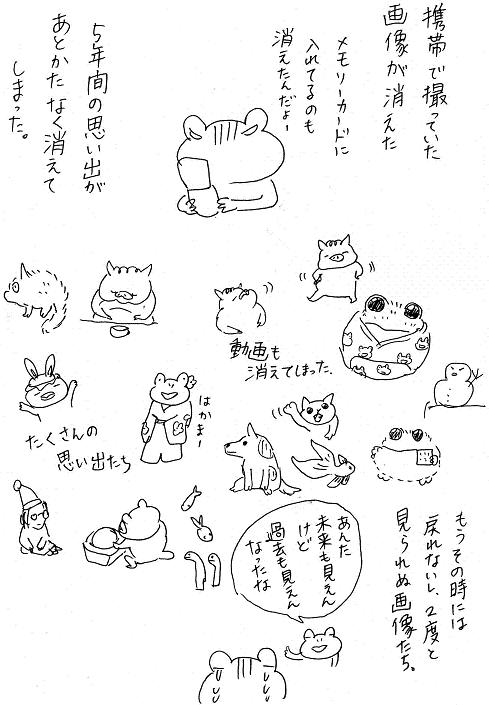 携帯で撮っていた
画像が消えた
メモリーカードに
入れてるのも
消えたんだよー
5年間の思い出が
あとかたなく消えて
しまった。
動画も
消えてしまった。
はかまー
たくさんの
思い出たち
もうその時には
戻れないし、2度と
見られぬ画像たち。
あんた
未来も見えん
けど
過去も見えん
なったな